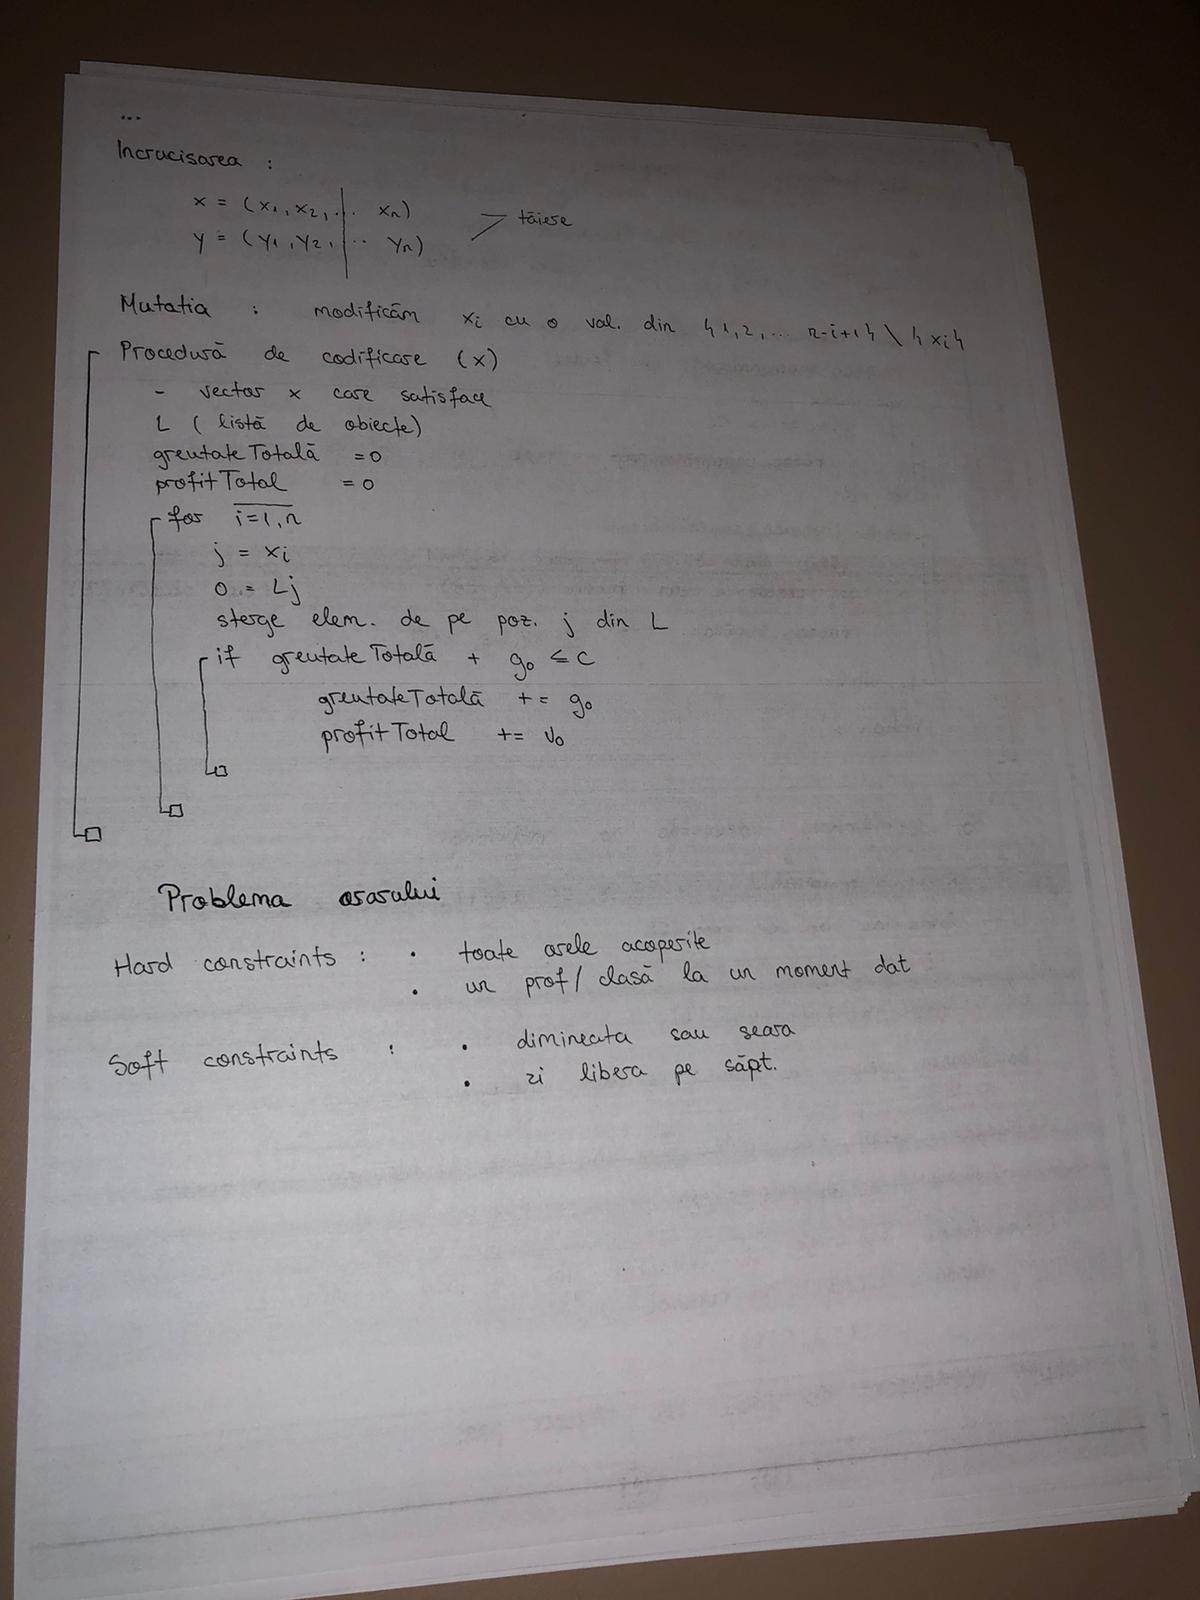 ...
Incrucisarea :
x = (x1, x2, ... xn)
tăiere
y = (y1, y2, ... yn)
Mutatia : modificăm xi cu o val. din {1,2,... n-i+1} \ {xi}
Procedură de codificare (x)
- vector x care satisface
L (listă de obiecte)
greutate Totală = 0
profit Total = 0
for i=1,n
j = xi
o = Lj
sterge elem. de pe poz. j din L
if greutate Totală + go ≤ C
greutate Totală += go
profit Total += vo
Problema orarului
Hard constraints : • toate orele acoperite
• un prof / clasă la un moment dat
Soft constraints : • dimineata sau seara
• zi libera pe săpt.